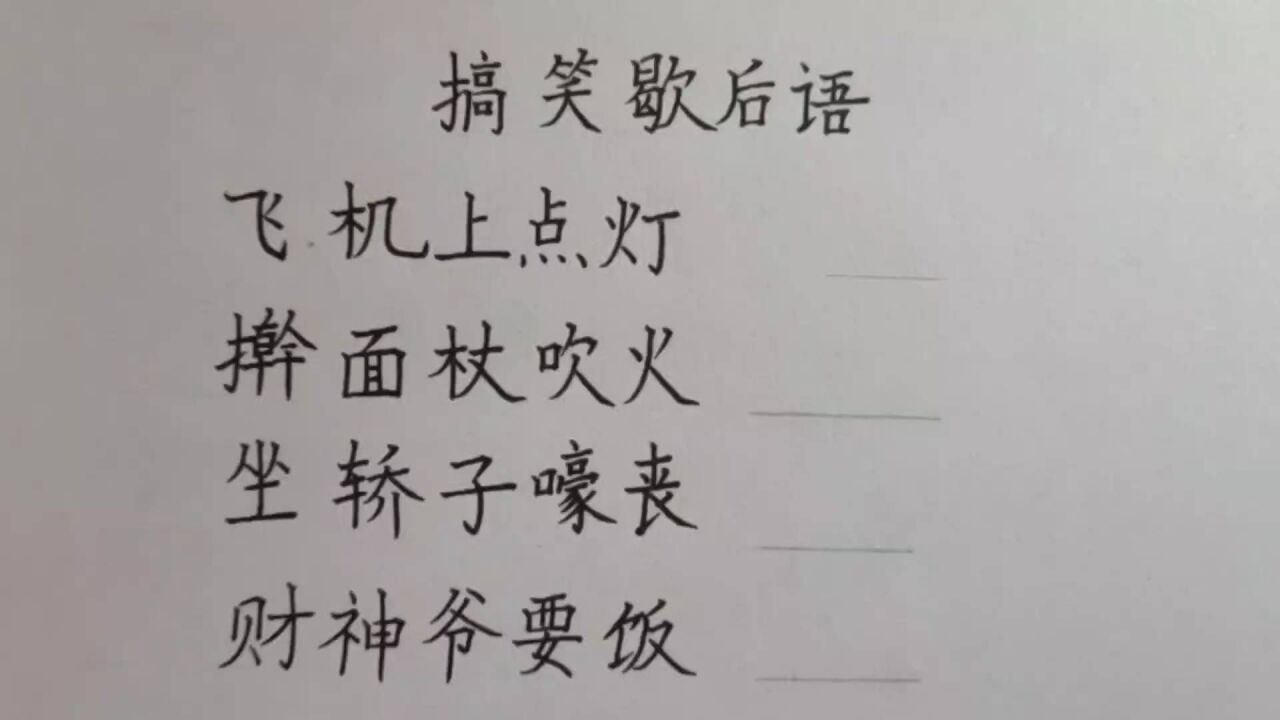 搞笑歇后语
飞机上点灯
擀面杖吹火
坐轿子嚎丧
财神爷要饭